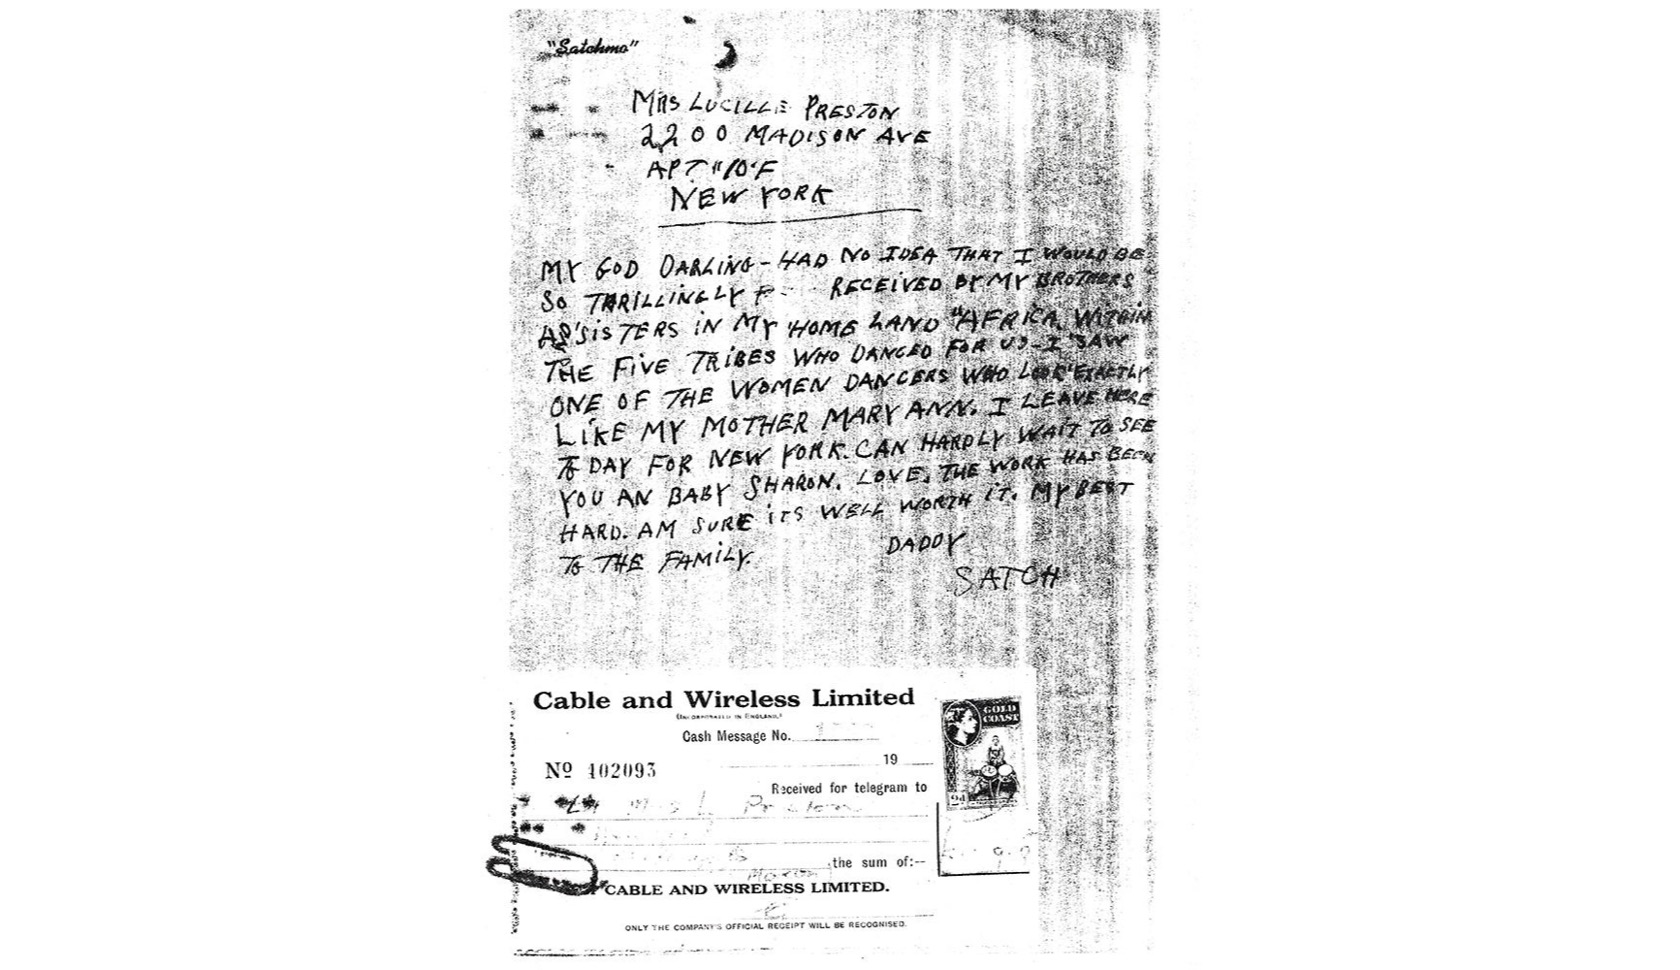 "Satchmo"
MRS LUCILLE PRESTON
2200 MADISON AVE
APT "10'F
NEW YORK
MY GOD DARLING - HAD NO IDEA THAT I WOULD BE
SO THRILLINGLY RECEIVED BY MY BROTHERS
SISTERS IN MY HOME LAND "AFRICA. WITHIN
THE FIVE TRIBES WHO DANCED FOR US - I SAW
ONE OF THE WOMEN DANCERS WHO LOOK EXACTLY
LIKE MY MOTHER MARY ANN. I LEAVE HERE
TO DAY FOR NEW YORK. CAN HARDLY WAIT TO SEE
YOU AN BABY SHARON. LOVE. THE WORK HAS BEEN
HARD. AM SURE ITS WELL WORTH IT. MY BEST
TO THE FAMILY.
DADDY
SATCH
Cable and Wireless Limited
(INCORPORATED IN ENGLAND)
GOLD
COAST
Cash Message No.
19
Nº 402093
Received for telegram to
2d
Preston
the sum of:--
CABLE AND WIRELESS LIMITED.
ONLY THE COMPANY'S OFFICIAL RECEIPT WILL BE RECOGNISED.